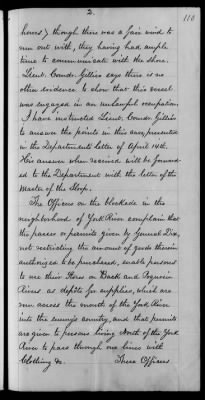 2.
110
hours) though there was a fair wind to
run out with, they having had ample
time to communicate with the shore.
Lieut. Comdr. Gillis says there is no
other evidence to show that this vessel
was engaged in an unlawful occupation.
I have instructed Lieut. Comdr. Gillis
to answer the points in this case, presented
in the Department's letter of April 10th.
His answer when received will be forward-
ed to the Department with the letter of the
Master of the Sloop.
The Officers on the blockade in the
neighborhood of York River complain that
the passes or permits given by General Dix,
not restricting the amount of goods therein
authorized to be purchased, enable persons
to use their Stores on Back and Poquosin
Rivers as depôts for supplies, which are
run across the mouth of the York River
into the enemy's country, and that permits
are given to persons living North of the York
River to pass through our lines with
Clothing &c. These Officers